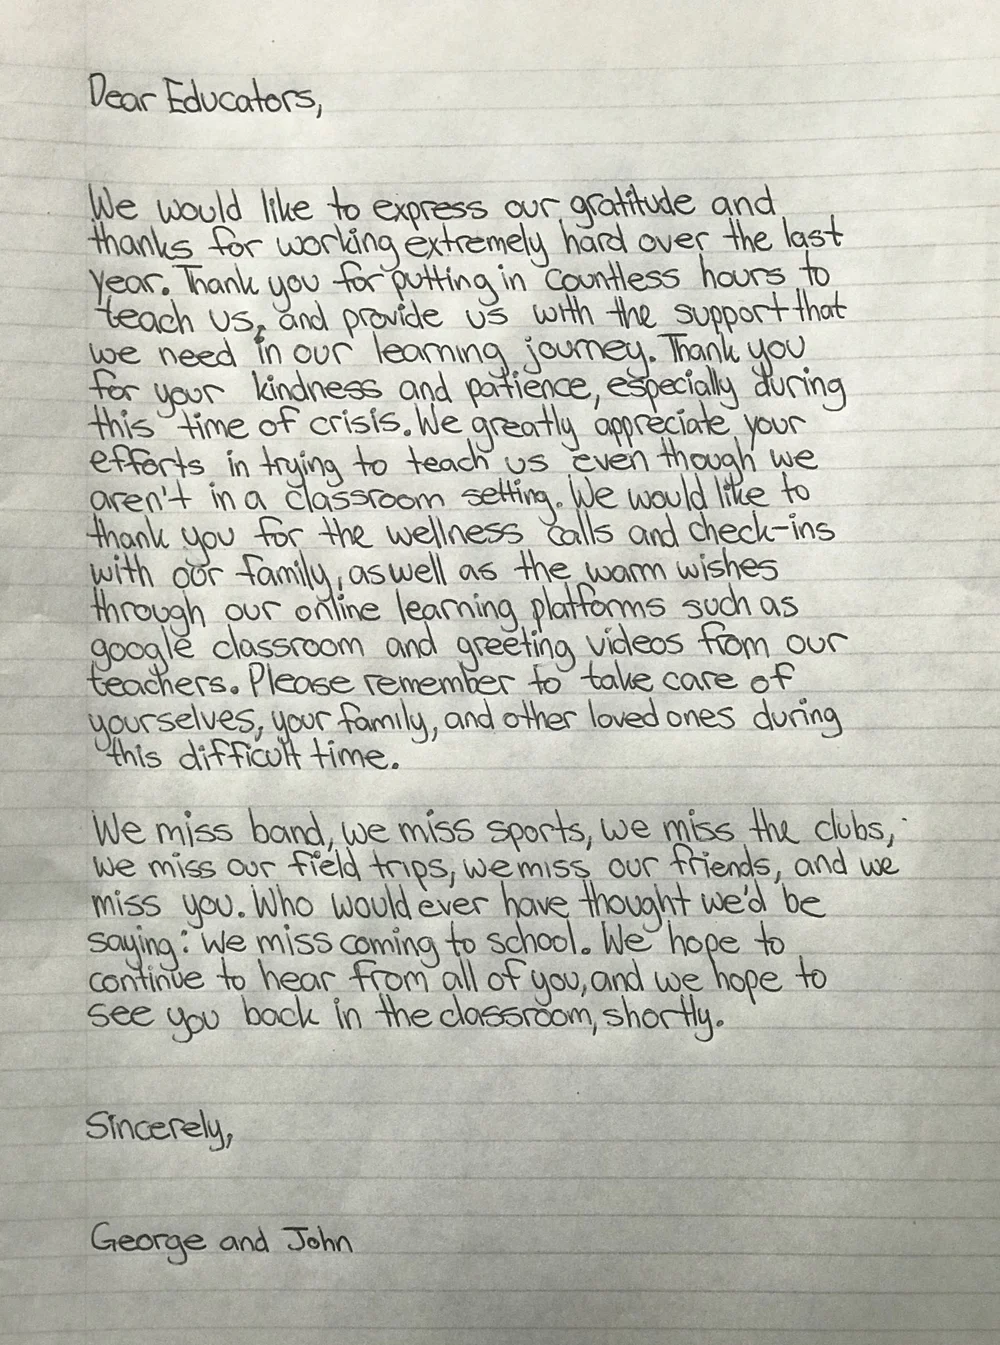 Dear Educators,
We would like to express our gratitude and
thanks for working extremely hard over the last
year. Thank you for putting in countless hours to
teach us, and provide us with the support that
we need in our learning journey. Thank you
for your kindness and patience, especially during
this time of crisis. We greatly appreciate your
efforts in trying to teach us even though we
aren't in a classroom setting. We would like to
thank you for the wellness calls and check-ins
with our family, as well as the warm wishes
through our online learning platforms such as
google classroom and greeting videos from our
teachers. Please remember to take care of
yourselves, your family, and other loved ones during
this difficult time.
We miss band, we miss sports, we miss the clubs,
we miss our field trips, we miss our friends, and we
miss you. Who would ever have thought we'd be
saying: We miss coming to school. We hope to
continue to hear from all of you, and we hope to
see you back in the classroom, shortly.
Sincerely,
George and John